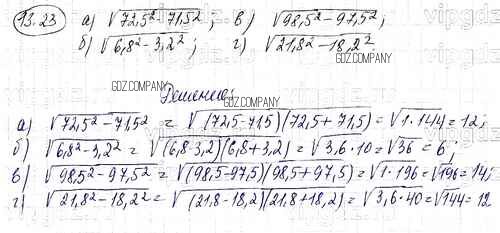 13.23 а) √72,5² - 71,5²; в) √98,5² - 97,5²;
б) √6,8² - 3,2²; г) √21,8² - 18,2².
GDZ.COMPANY
Решение:
GDZ.COMPANY
а) √72,5² - 71,5² = √(72,5 - 71,5)(72,5 + 71,5) = √1·144 = 12;
б) √6,8² - 3,2² = √(6,8 - 3,2)(6,8 + 3,2) = √3,6·10 = √36 = 6;
в) √98,5² - 97,5² = √(98,5 - 97,5)(98,5 + 97,5) = √1·196 = √196 = 14;
г) √21,8² - 18,2² = √(21,8 - 18,2)(21,8 + 18,2) = √3,6·40 = √144 = 12